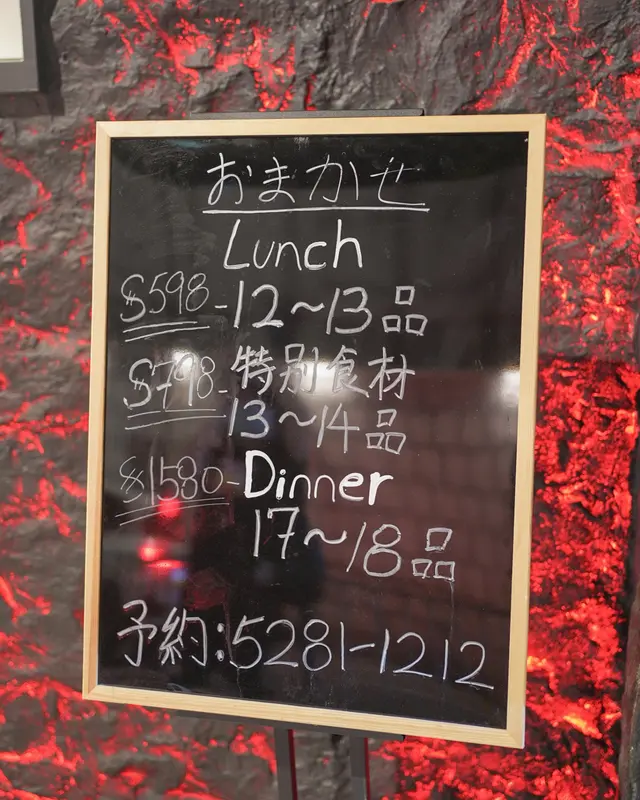 おまかせ
Lunch
$598-12~13品
$798-特別食材
13~14品
$1580-Dinner
17~18品
予約:5281-1212